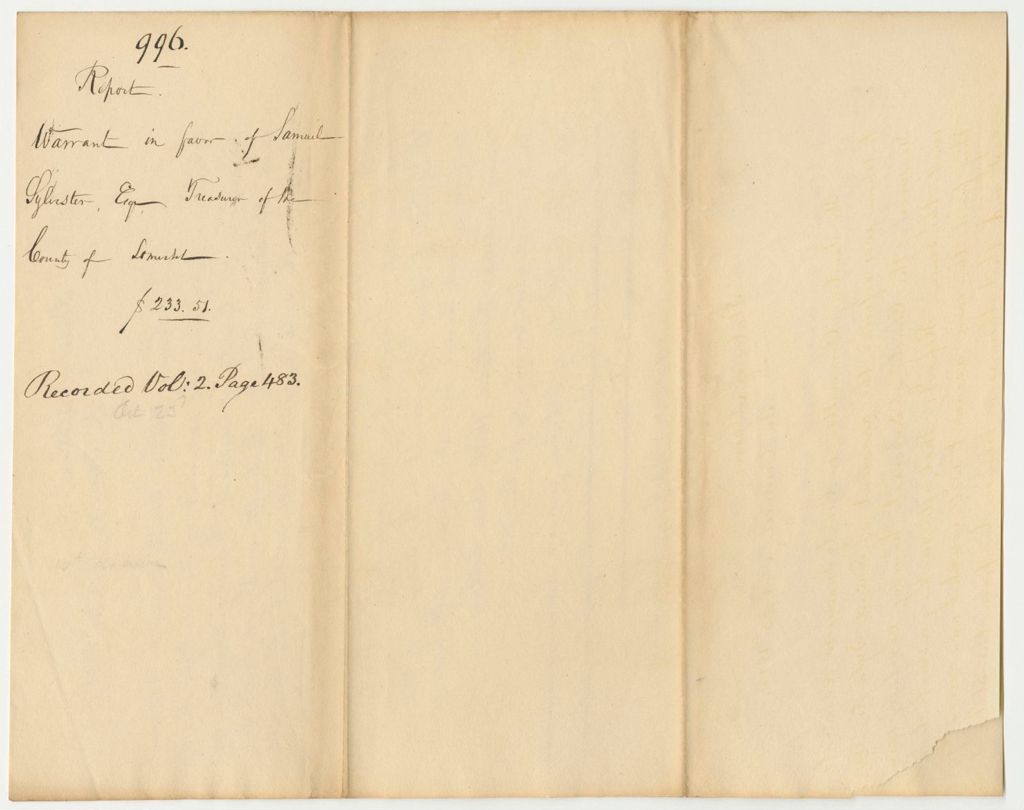 996.
Report.
Warrant in favor of Samuel
Sylvester, Esq. Treasurer of the
County of Somerset.
$ 233. 51.
Recorded Vol: 2. Page 483.
Oct 23